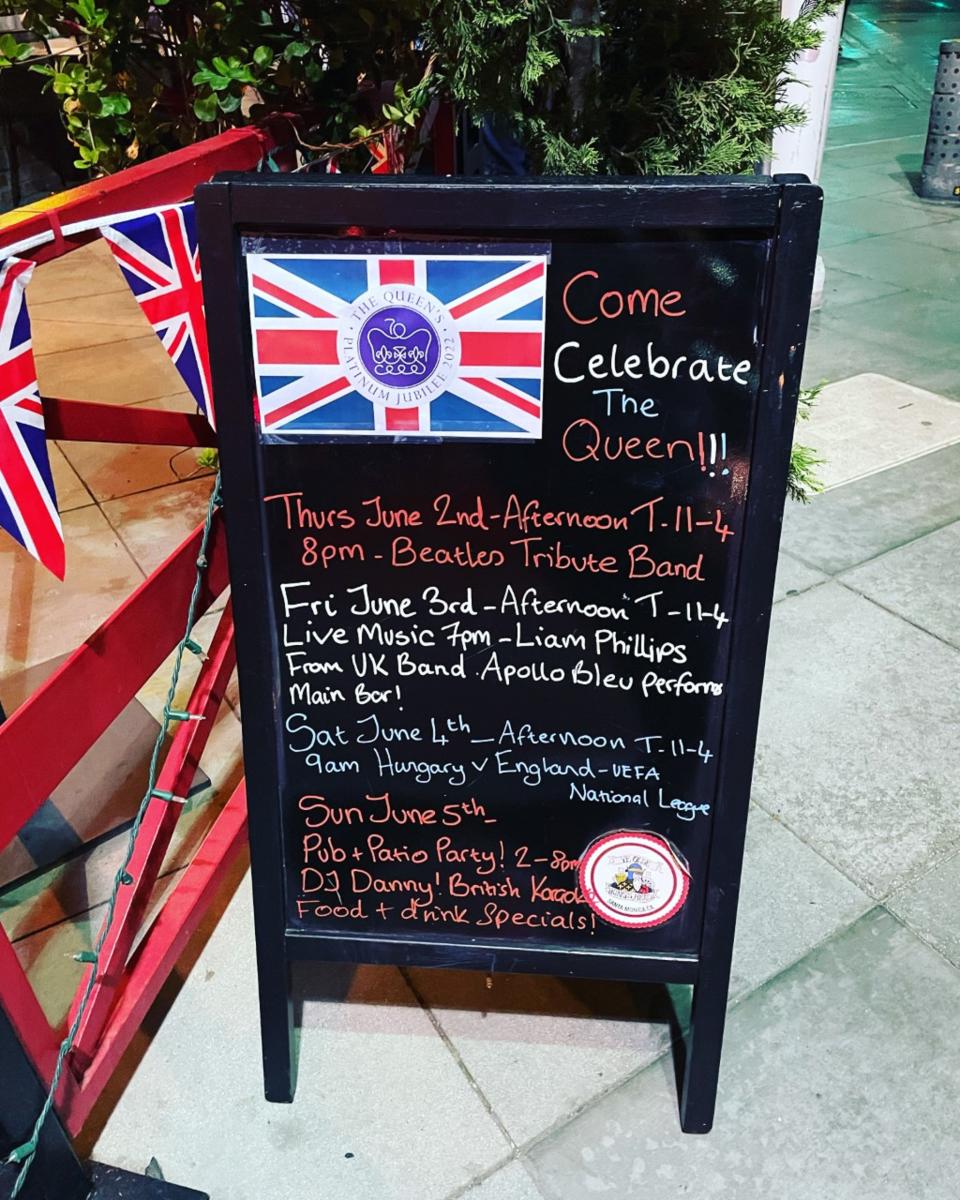 THE QUEEN'S
70
PLATINUM JUBILEE 2022
Come
Celebrate
The
Queen!!!
Thurs June 2nd-Afternoon T-11-4
8pm - Beatles Tribute Band
Fri June 3rd - Afternoon T - 11-4
Live Music 7pm - Liam Phillips
From UK Band Apollo Bleu performs
Main Bar!
Sat June 4th - Afternoon T-11-4
9am Hungary v England - UEFA
National League
Sun June 5th -
Pub + Patio Party! 2-8pm
DJ Danny! British Karaok
Food + drink Specials!
YE OLDE
SANTA MONICA CA